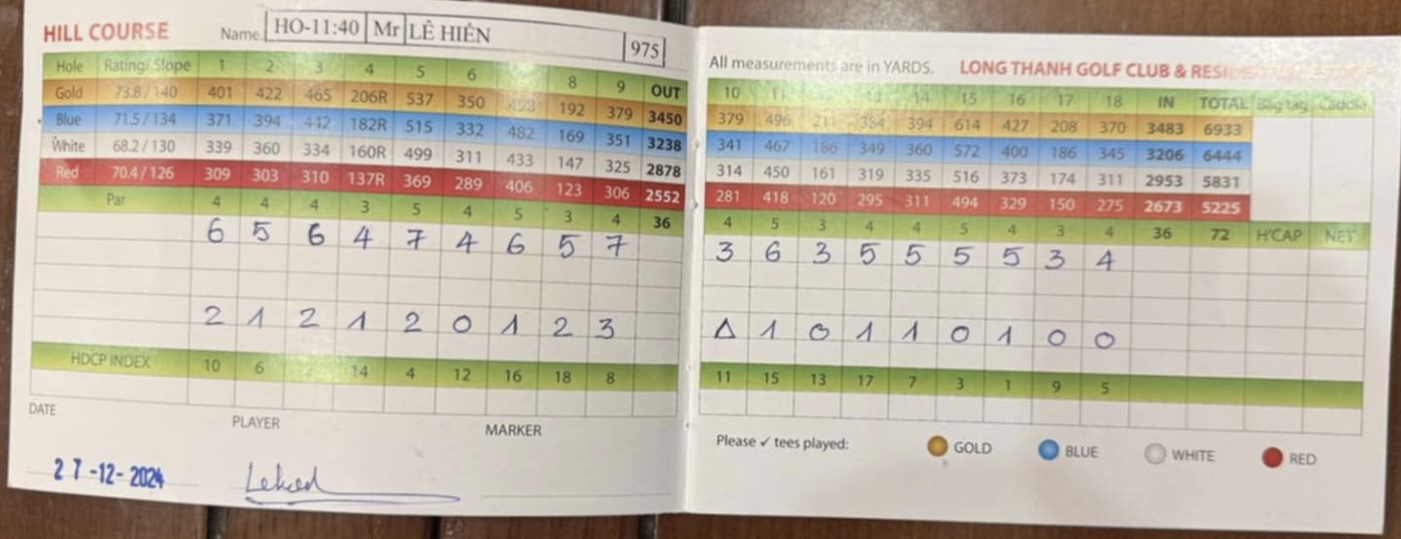 HILL COURSE Name HO-11:40 Mr LÊ HIÊN 975
Hole Rating/ Slope 1 2 3 4 5 6 8 9 OUT
Gold 73.8 / 140 401 422 465 206R 537 350 493 192 379 3450
Blue 71.5 / 134 371 394 442 182R 515 332 482 169 351 3238
White 68.2 / 130 339 360 334 160R 499 311 433 147 325 2878
Red 70.4 / 126 309 303 310 137R 369 289 406 123 306 2552
Par 4 4 4 3 5 4 5 3 4 36
6 5 6 4 7 4 6 5 7
2 1 2 1 2 0 1 2 3
HDCP INDEX 10 6 14 4 12 16 18 8
DATE PLAYER MARKER
27-12-2024
All measurements are in YARDS. LONG THANH GOLF CLUB &
10 11 13 14 15 16 17 18 IN TOTAL Bag tag Caddie
379 496 211 384 394 614 427 208 370 3483 6933
341 467 186 349 360 572 400 186 345 3206 6444
314 450 161 319 335 516 373 174 311 2953 5831
281 418 120 295 311 494 329 150 275 2673 5225
4 5 3 4 4 5 4 3 4 36 72 H'CAP NET
3 6 3 5 5 5 5 3 4
Δ 1 0 1 1 0 1 0 0
11 15 13 17 7 3 1 9 5
Please ✓ tees played: GOLD BLUE WHITE RED